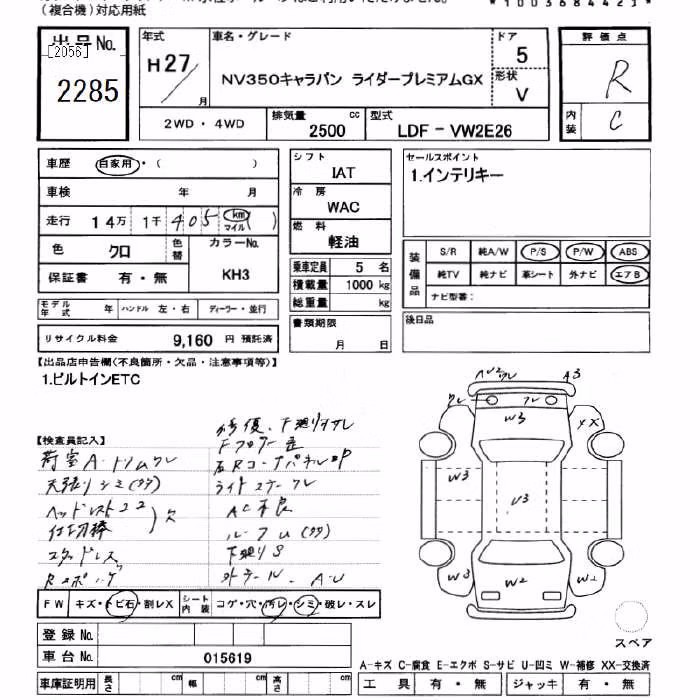 （複合機）対応用紙
*10036844 23*
出品No.
[2056]
2285
年式 H27/ 月
車名・グレード
NV350キャラバン ライダープレミアムGX
ドア 5
形状 V
2WD・4WD
排気量 2500 cc
型式 LDF - VW2E26
評価点 R
内装 C
車歴 自家用・( )
車検 年 月
走行 14万 1千 405 (km マイル)
色 クロ 色替
カラーNo. KH3
保証書 有・無
モデル年式 年 ハンドル 左・右 ディーラー・並行
リサイクル料金 9,160 円 預託済
シフト IAT
冷房 WAC
燃料 軽油
乗車定員 5 名
積載量 1000 kg
総重量 kg
書類期限 月 日
セールスポイント
1.インテリキー
装備品
S/R 純A/W P/S P/W ABS
純TV 純ナビ 革シート 外ナビ エアB
ナビ型番：
後日品
【出品店申告欄(不良箇所・欠品・注意事項等)】
1.ビルトインETC
【検査員記入】
修復、下廻りサレ
Fフロアー歪
荷室A・トリムワレ
右RコーナーパネルP
天張りシミ(タタ)
ライトステーワレ
ヘッドレスト22
仕切棒 欠
AC不良
ルーフU(タタ)
スタッドレス
下廻りS
外テール、A・U
FW キズ・トビ石・割レX シート内装 コゲ・穴・汚レ・シミ・破レ・スレ
登録No.
車台No. 015619
車庫証明用 長さ cm 幅 cm 高さ cm
AU2ワレ A3
ワレ ワレ
W3
XX
W3 U3 W3
W3 W2 W2
スペア
A-キズ C-腐食 E-エクボ S-サビ U-凹ミ W-補修 XX-交換済
工具 有・無 ジャッキ 有・無